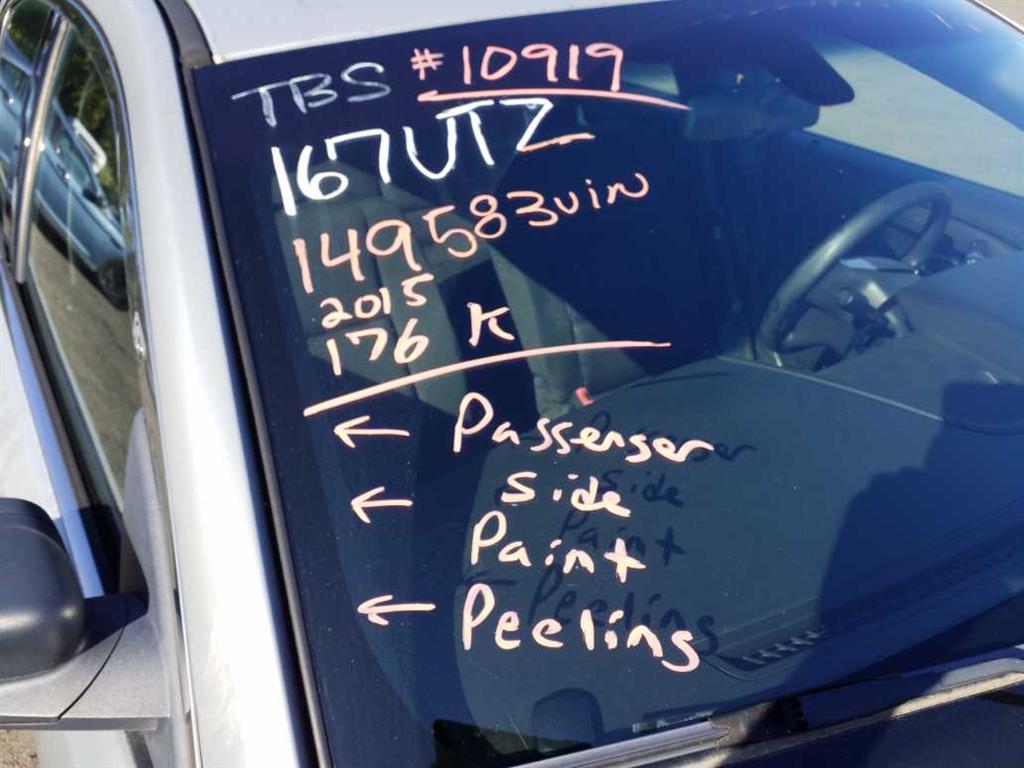 TBS #10919
167UTZ
149583vin
2015
176 K
← Passenger
← Side
Paint
← Peeling